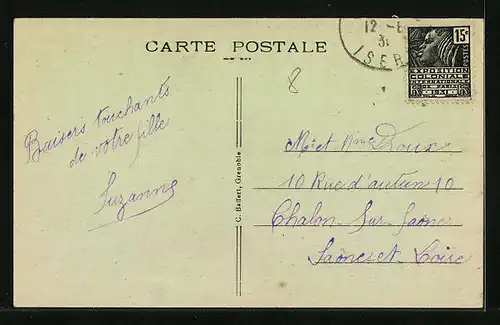 CARTE POSTALE
12 -
31
ISER
15c
POSTES
EXPOSITION
COLONIALE
INTERNATIONALE
DE PARIS
1931
8
Baisers touchants
de votre fille
Suzanne
C. Baffert, Grenoble
M. et Mme Doux
10 Rue d'autun 10
Chalon Sur Saône
Saône et Loire